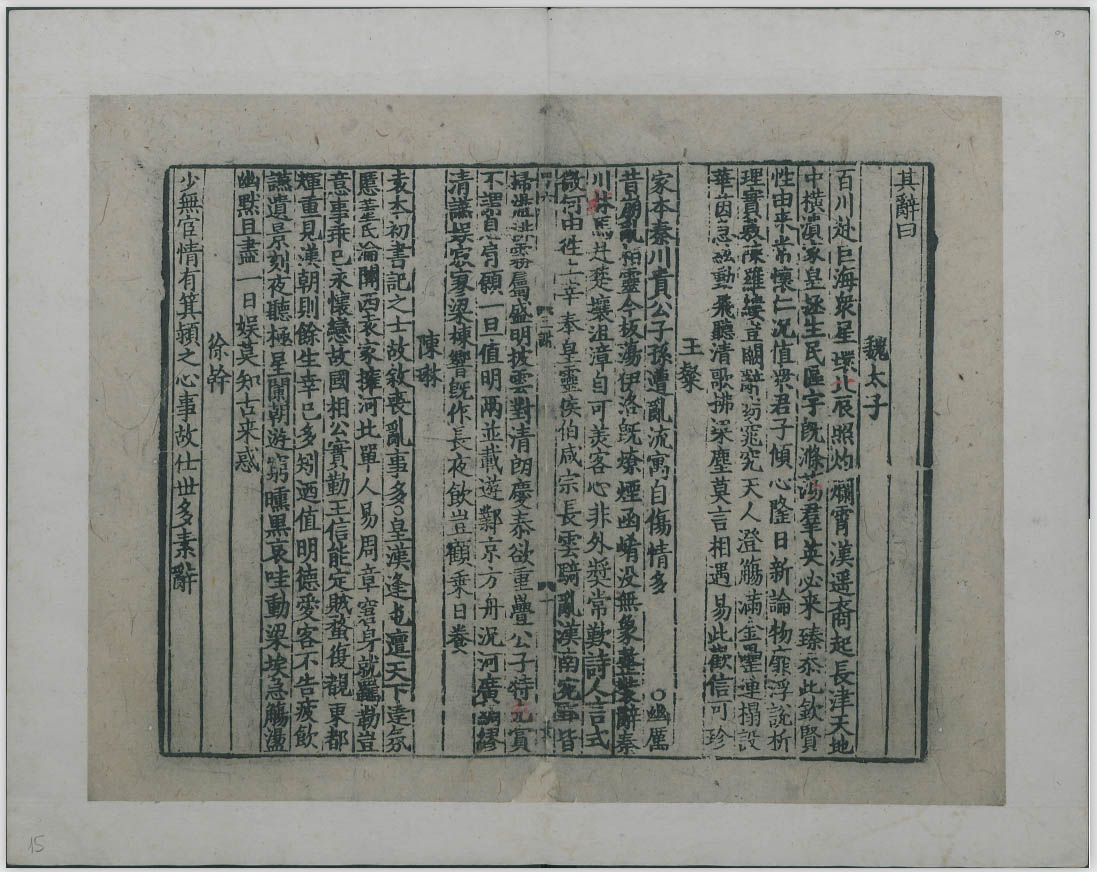 其辭曰
魏太子
百川赴巨海衆星環北辰照灼爛霄漢遥裔起長津天地
中横潰家皇拯生民區宇旣滌蕩羣英必来臻忝此欽賢
性由来常懷仁况值衆君子傾心隆日新論物靡浮說析
理實敷陳羅縷豈闕辭窈窕究天人澄觴滿金罍連榻設
華茵急絃動飛聽清歌拂梁塵莫言相遇易此歡信可珍
王粲
家本秦川貴公子孫遭亂流寓自傷情多○幽厲
昔崩亂桓靈今板蕩伊洛旣燎煙函崤没無象整裝辭秦
川秣馬赴楚壤沮漳自可美客心非外奬常歎詩人言式
微何由往上宰奉皇靈侯伯咸宗長雲騎亂漢南宛郢皆
三謝
十
掃盪排霧屬盛明披雲對清朗慶泰欲重疊公子特先賞
不謂息肩願一旦值明兩並載遊鄴京方舟汎河廣綢繆
清讌娱寂寥梁棟響旣作長夜飲豈顧乘日養
陳琳
袁本初書記之士故敘喪亂事多○皇漢逢屯邅天下遭氛
慝董氏淪關西袁家擁河北單人易周章窘身就羈勒豈
意事乖已永懷戀故國相公實勤王信能定賊蝥復覩東都
輝重見漢朝則餘生幸已多矧迺值明德愛客不告疲飲
讌遺景刻夜聽極星闌朝遊窮曛黑哀哇動梁埃急觴盪
幽黙且盡一日娱莫知古来惑
徐幹
少無宦情有箕潁之心事故仕世多素辭
15